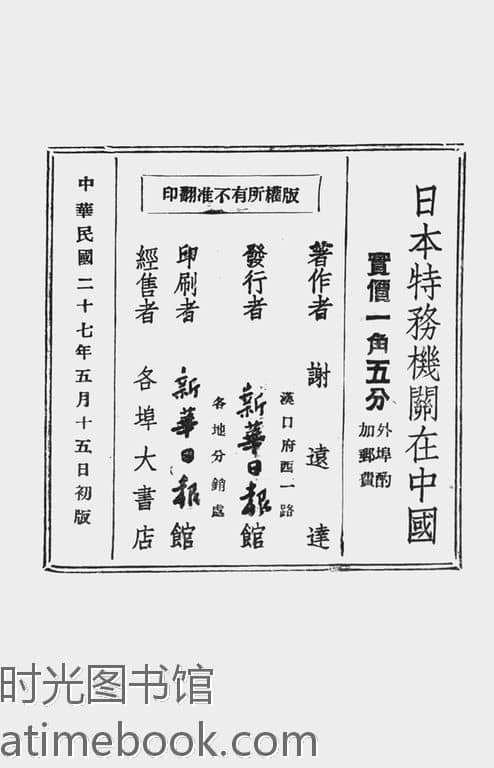 日本特務機關在中國
實價一角五分
外埠酌
加郵費
版權所有不准翻印
著作者 謝遠達
漢口府西一路
發行者 新華日報館
各地分銷處
印刷者 新華日報館
經售者 各埠大書店
中華民國二十七年五月十五日初版
时光图书馆
atimebook.com